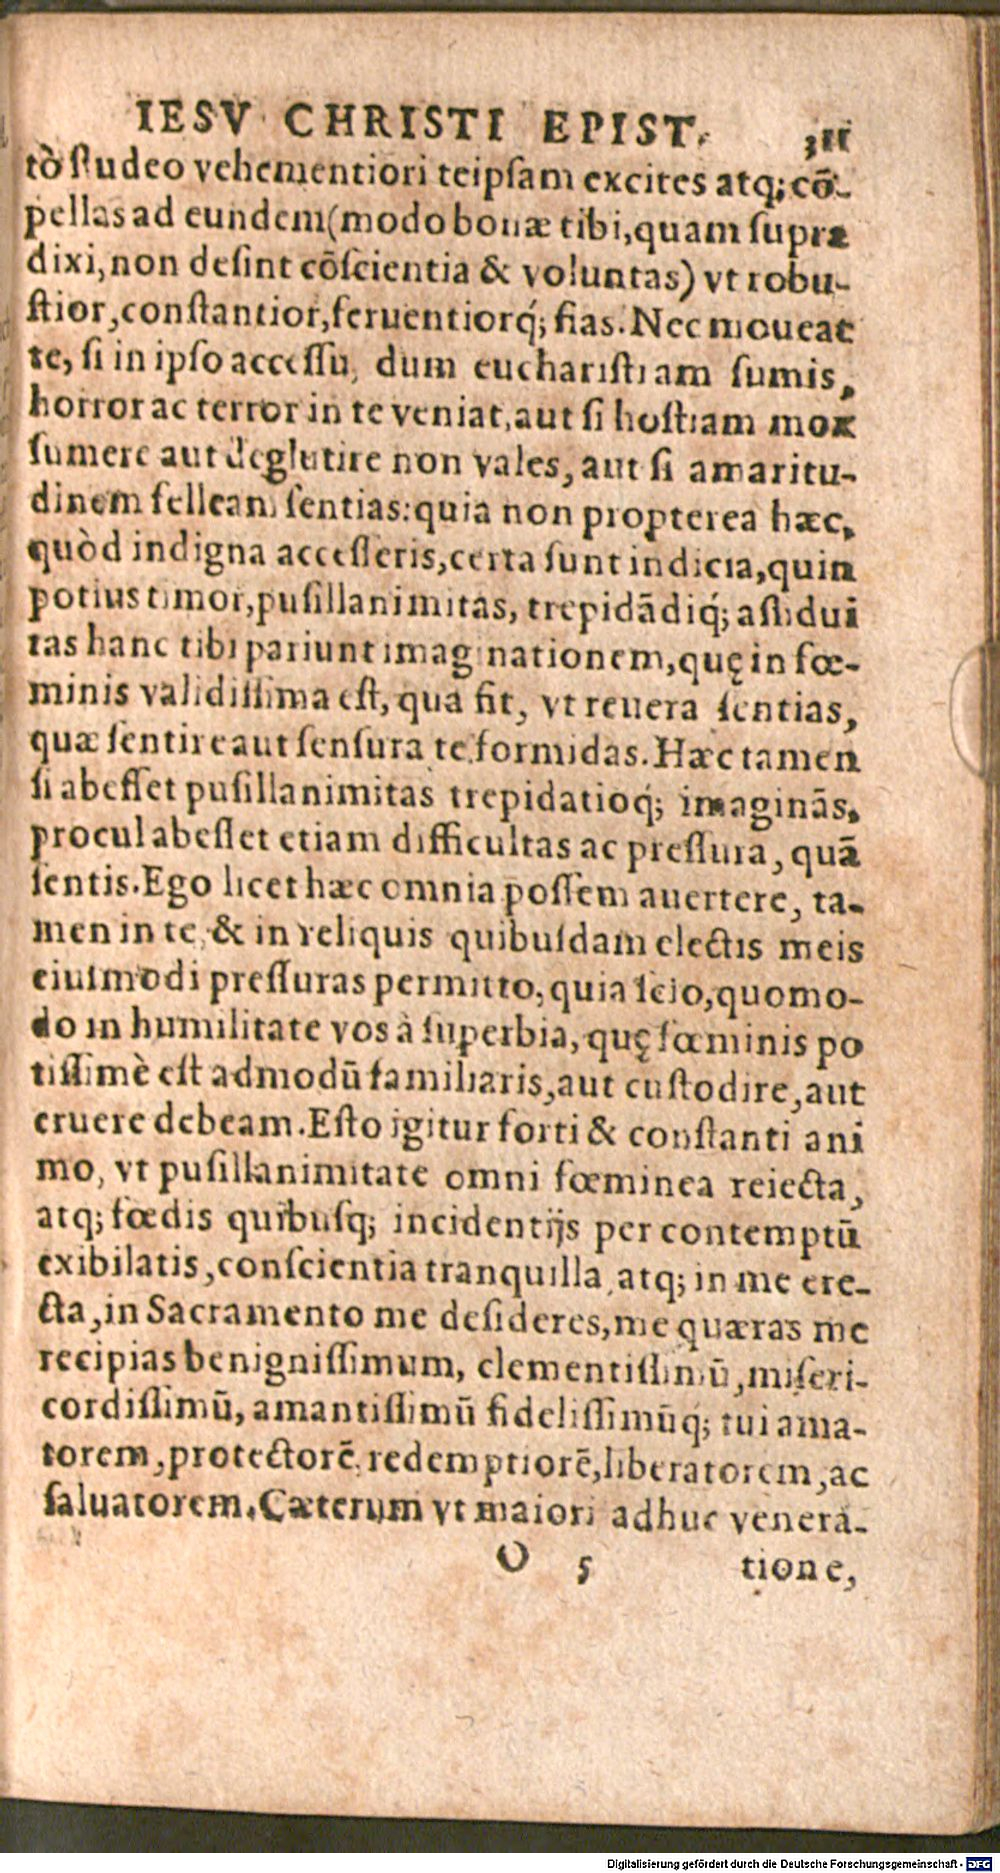 IESV CHRISTI EPIST. 311
tò ſtudeo vehementiori teipſam excites atq; cō-
pellas ad eundem (modo bonæ tibi, quam ſupra
dixi, non deſint cōſcientia & voluntas) vt robu-
ſtior, conſtantior, feruentiorq́; fias. Nec moueat
te, ſi in ipſo acceſſu, dum euchariſtiam ſumis,
horror ac terror in te veniat, aut ſi hoſtiam mox
ſumere aut deglutire non vales, aut ſi amaritu-
dinem felleam ſentias: quia non propterea hæc,
quòd indigna acceſſeris, certa ſunt indicia, quin
potius timor, puſillanimitas, trepidādiq́; aſſidui
tas hanc tibi pariunt imaginationem, quę in fœ-
minis validiſſima eſt, qua fit, vt reuera ſentias,
quæ ſentire aut ſenſura te formidas. Hæc tamen
ſi abeſſet puſillanimitas trepidatioq́; imaginās,
procul abeſſet etiam difficultas ac preſſura, quā
ſentis. Ego licet hæc omnia poſſem auertere, ta-
men in te, & in reliquis quibuſdam electis meis
eiuſmodi preſſuras permitto, quia ſcio, quomo-
do in humilitate vos à ſuperbia, quę fœminis po
tiſſimè eſt admodū familiaris, aut cuſtodire, aut
eruere debeam. Eſto igitur forti & conſtanti ani
mo, vt puſillanimitate omni fœminea reiecta,
atq; fœdis quibuſq; incidentijs per contemptū
exibilatis, conſcientia tranquilla, atq; in me ere-
cta, in Sacramento me deſideres, me quæras me
recipias benigniſſimum, clementiſſimū, miſeri-
cordiſſimū, amantiſſimū fideliſſimūq́; tui ama-
torem, protectorē, redemptorē, liberatorem, ac
ſaluatorem. Cæterum vt maiori adhuc venera-
O 5 tione,
Digitalisierung gefördert durch die Deutsche Forschungsgemeinschaft - DFG